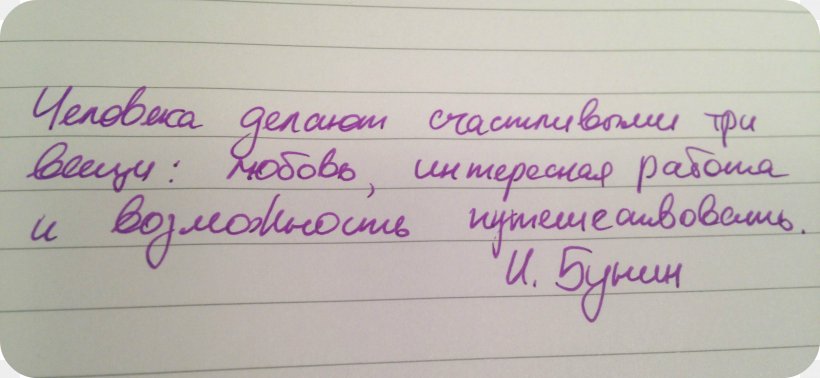 Человека делают счастливыми три
вещи: любовь, интересная работа
и возможность путешествовать.
И. Бунин